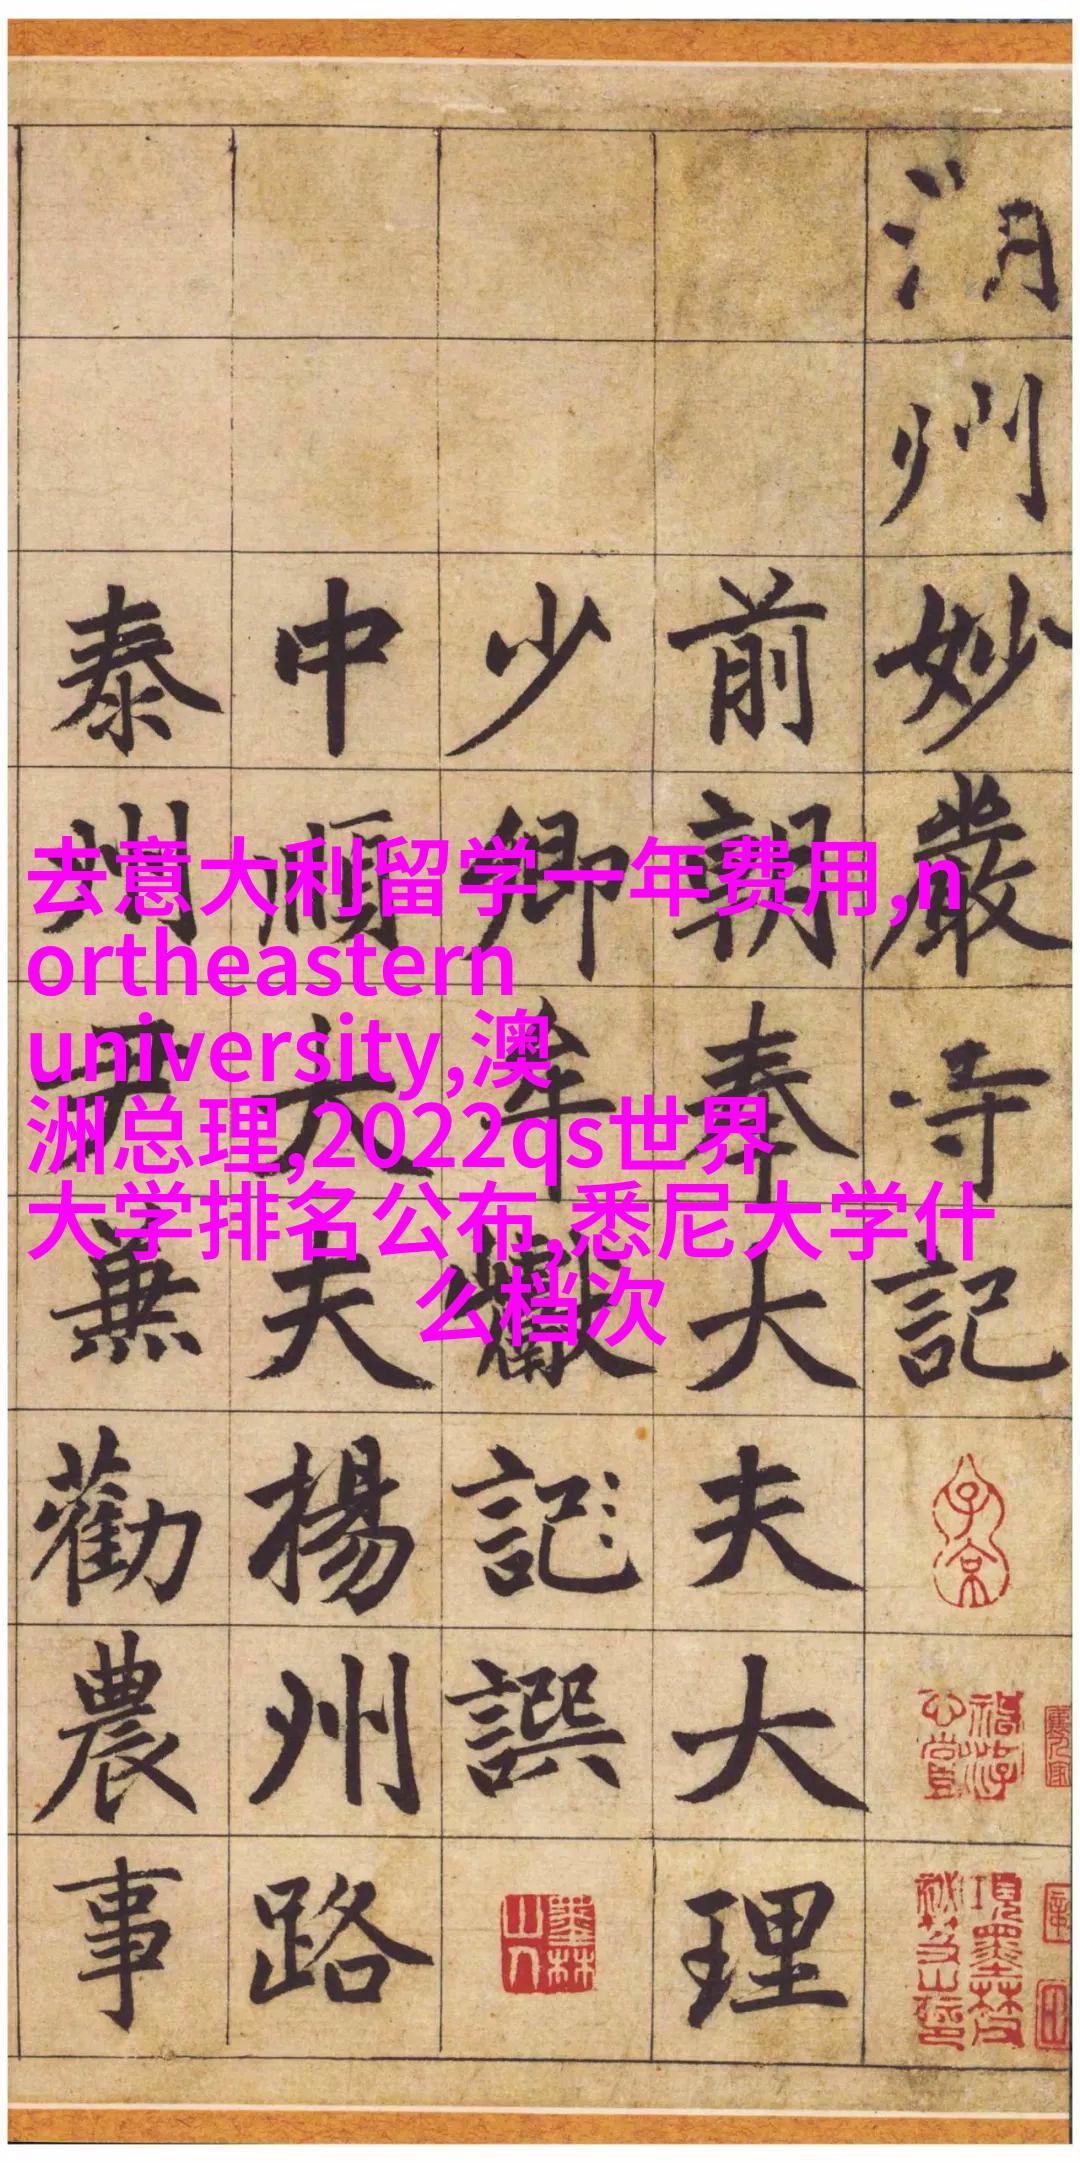 去意大利留学一年费用,n
ortheastern
university,澳
洲总理,2022qs世界
大学排名公布,悉尼大学什
么档次
州妙嚴寺記
子京
前朝奉大夫大理
少卿牟巘記譔
墨林山人
中順大夫揚州路
泰州尹兼勸農事